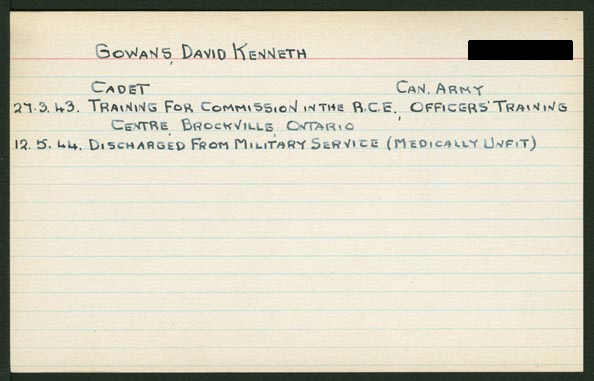 GOWANS, DAVID KENNETH
CADET CAN. ARMY
27.3.43. TRAINING FOR COMMISSION IN THE R.C.E., OFFICERS' TRAINING
CENTRE, BROCKVILLE, ONTARIO
12.5.44. DISCHARGED FROM MILITARY SERVICE (MEDICALLY UNFIT)